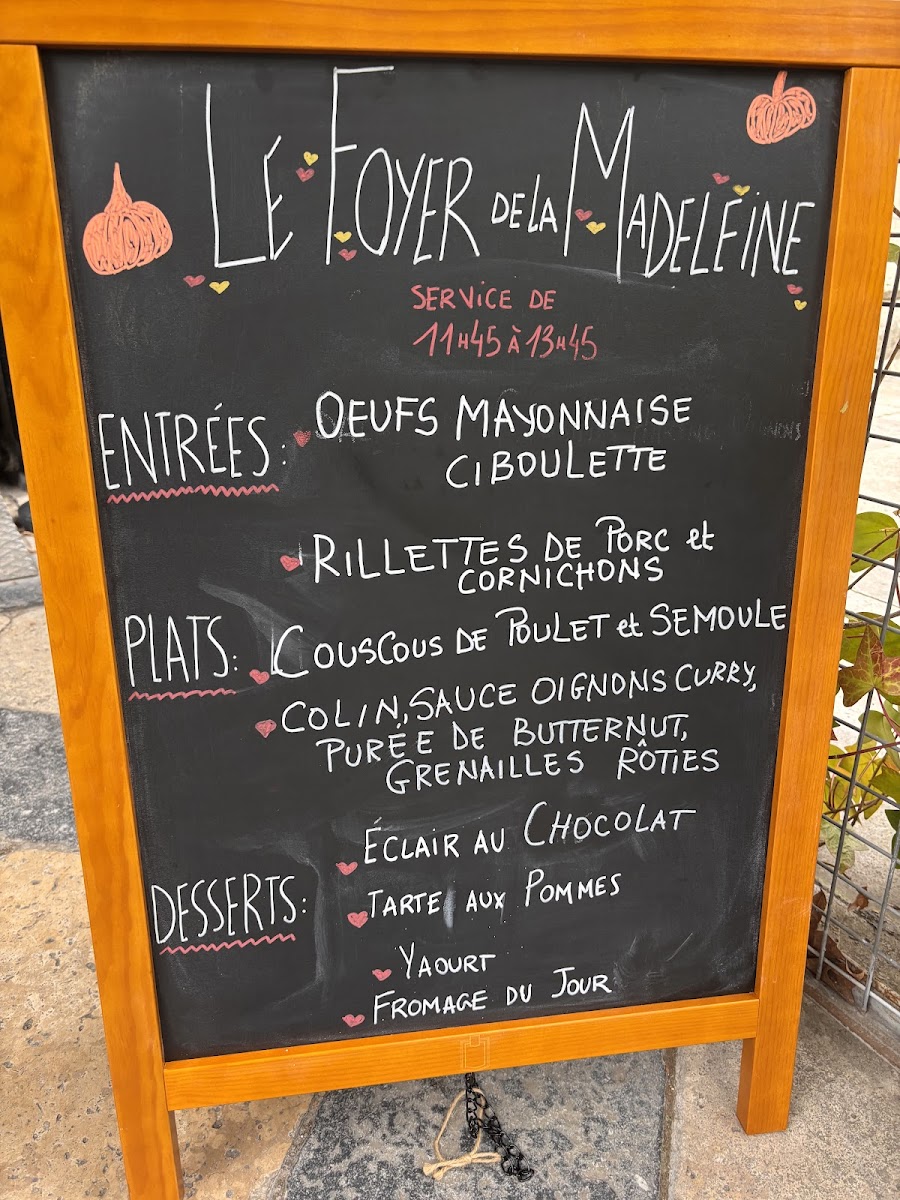 LE FOYER DE LA MADELEINE
SERVICE DE
11H45 À 13H45
ENTRÉES:
OEUFS MAYONNAISE
CIBOULETTE
RILLETTES DE PORC et
CORNICHONS
PLATS:
COUSCOUS DE POULET et SEMOULE
COLIN, SAUCE OIGNONS CURRY,
PURÉE DE BUTTERNUT,
GRENAILLES RÔTIES
DESSERTS:
ÉCLAIR AU CHOCOLAT
TARTE AUX POMMES
YAOURT
FROMAGE DU JOUR